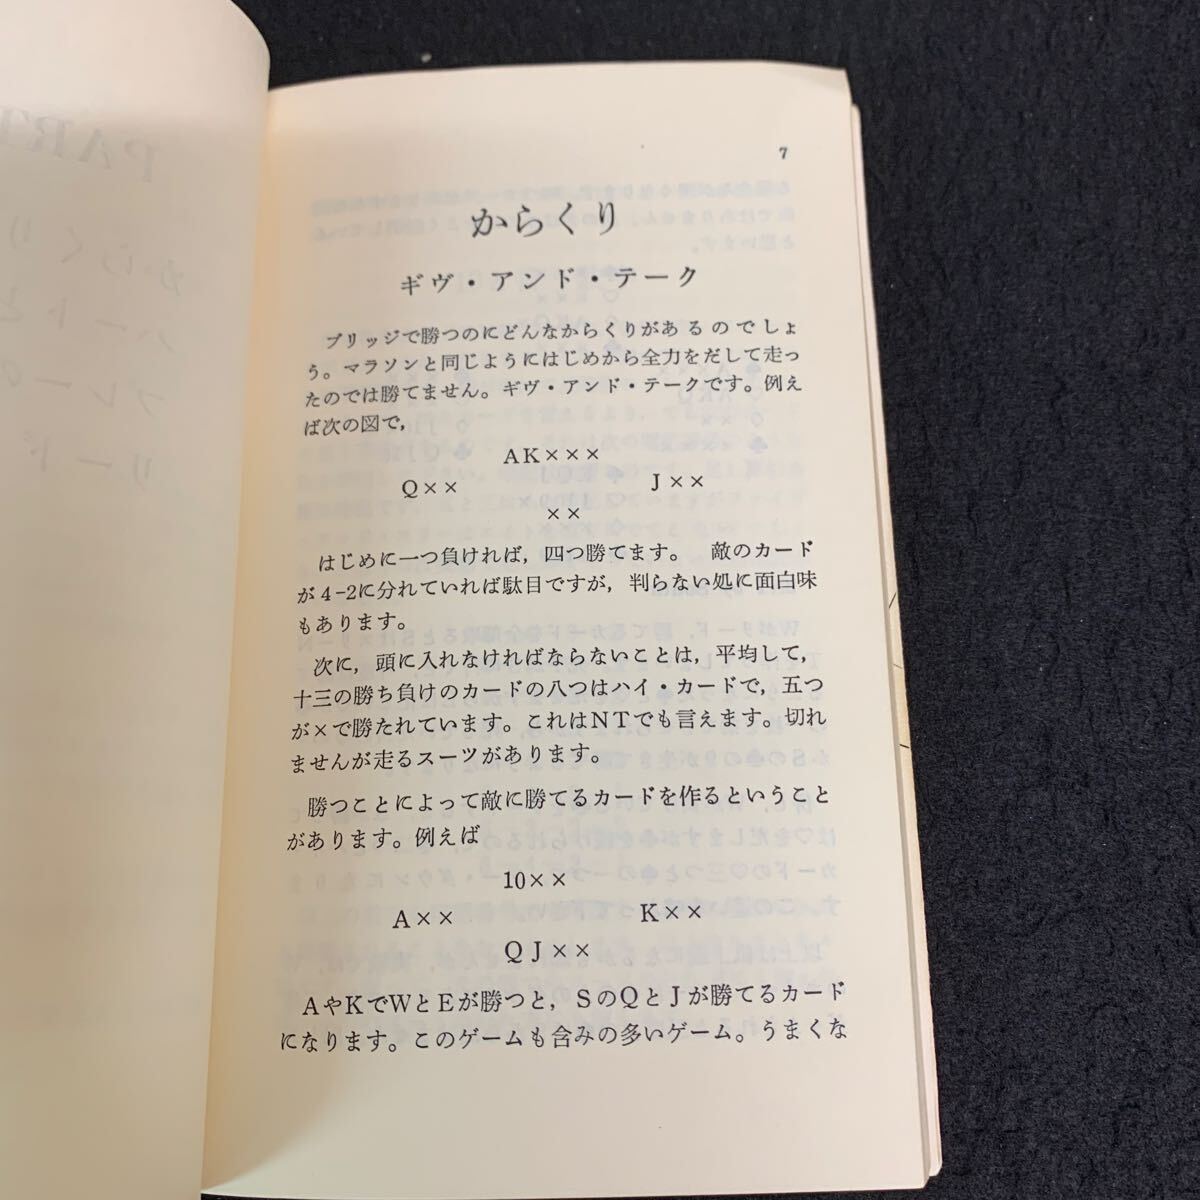 PART
からくり
ハートと
プレーの
リード
7
からくり
ギヴ・アンド・テーク
ブリッジで勝つのにどんなからくりがあるのでしょ
う。マラソンと同じようにはじめから全力をだして走っ
たのでは勝てません。ギヴ・アンド・テークです。例え
ば次の図で,
AK×××
Q×× J××
××
はじめに一つ負ければ,四つ勝てます。 敵のカード
が4-2に分れていれば駄目ですが,判らない処に面白味
もあります。
次に,頭に入れなければならないことは,平均して,
十三の勝ち負けのカードの八つはハイ・カードで,五つ
が×で勝たれています。これはNTでも言えます。切れ
ませんが走るスーツがあります。
勝つことによって敵に勝てるカードを作るということ
があります。例えば
10××
A×× K××
QJ××
AやKでWとEが勝つと,SのQとJが勝てるカード
になります。このゲームも含みの多いゲーム。うまくな